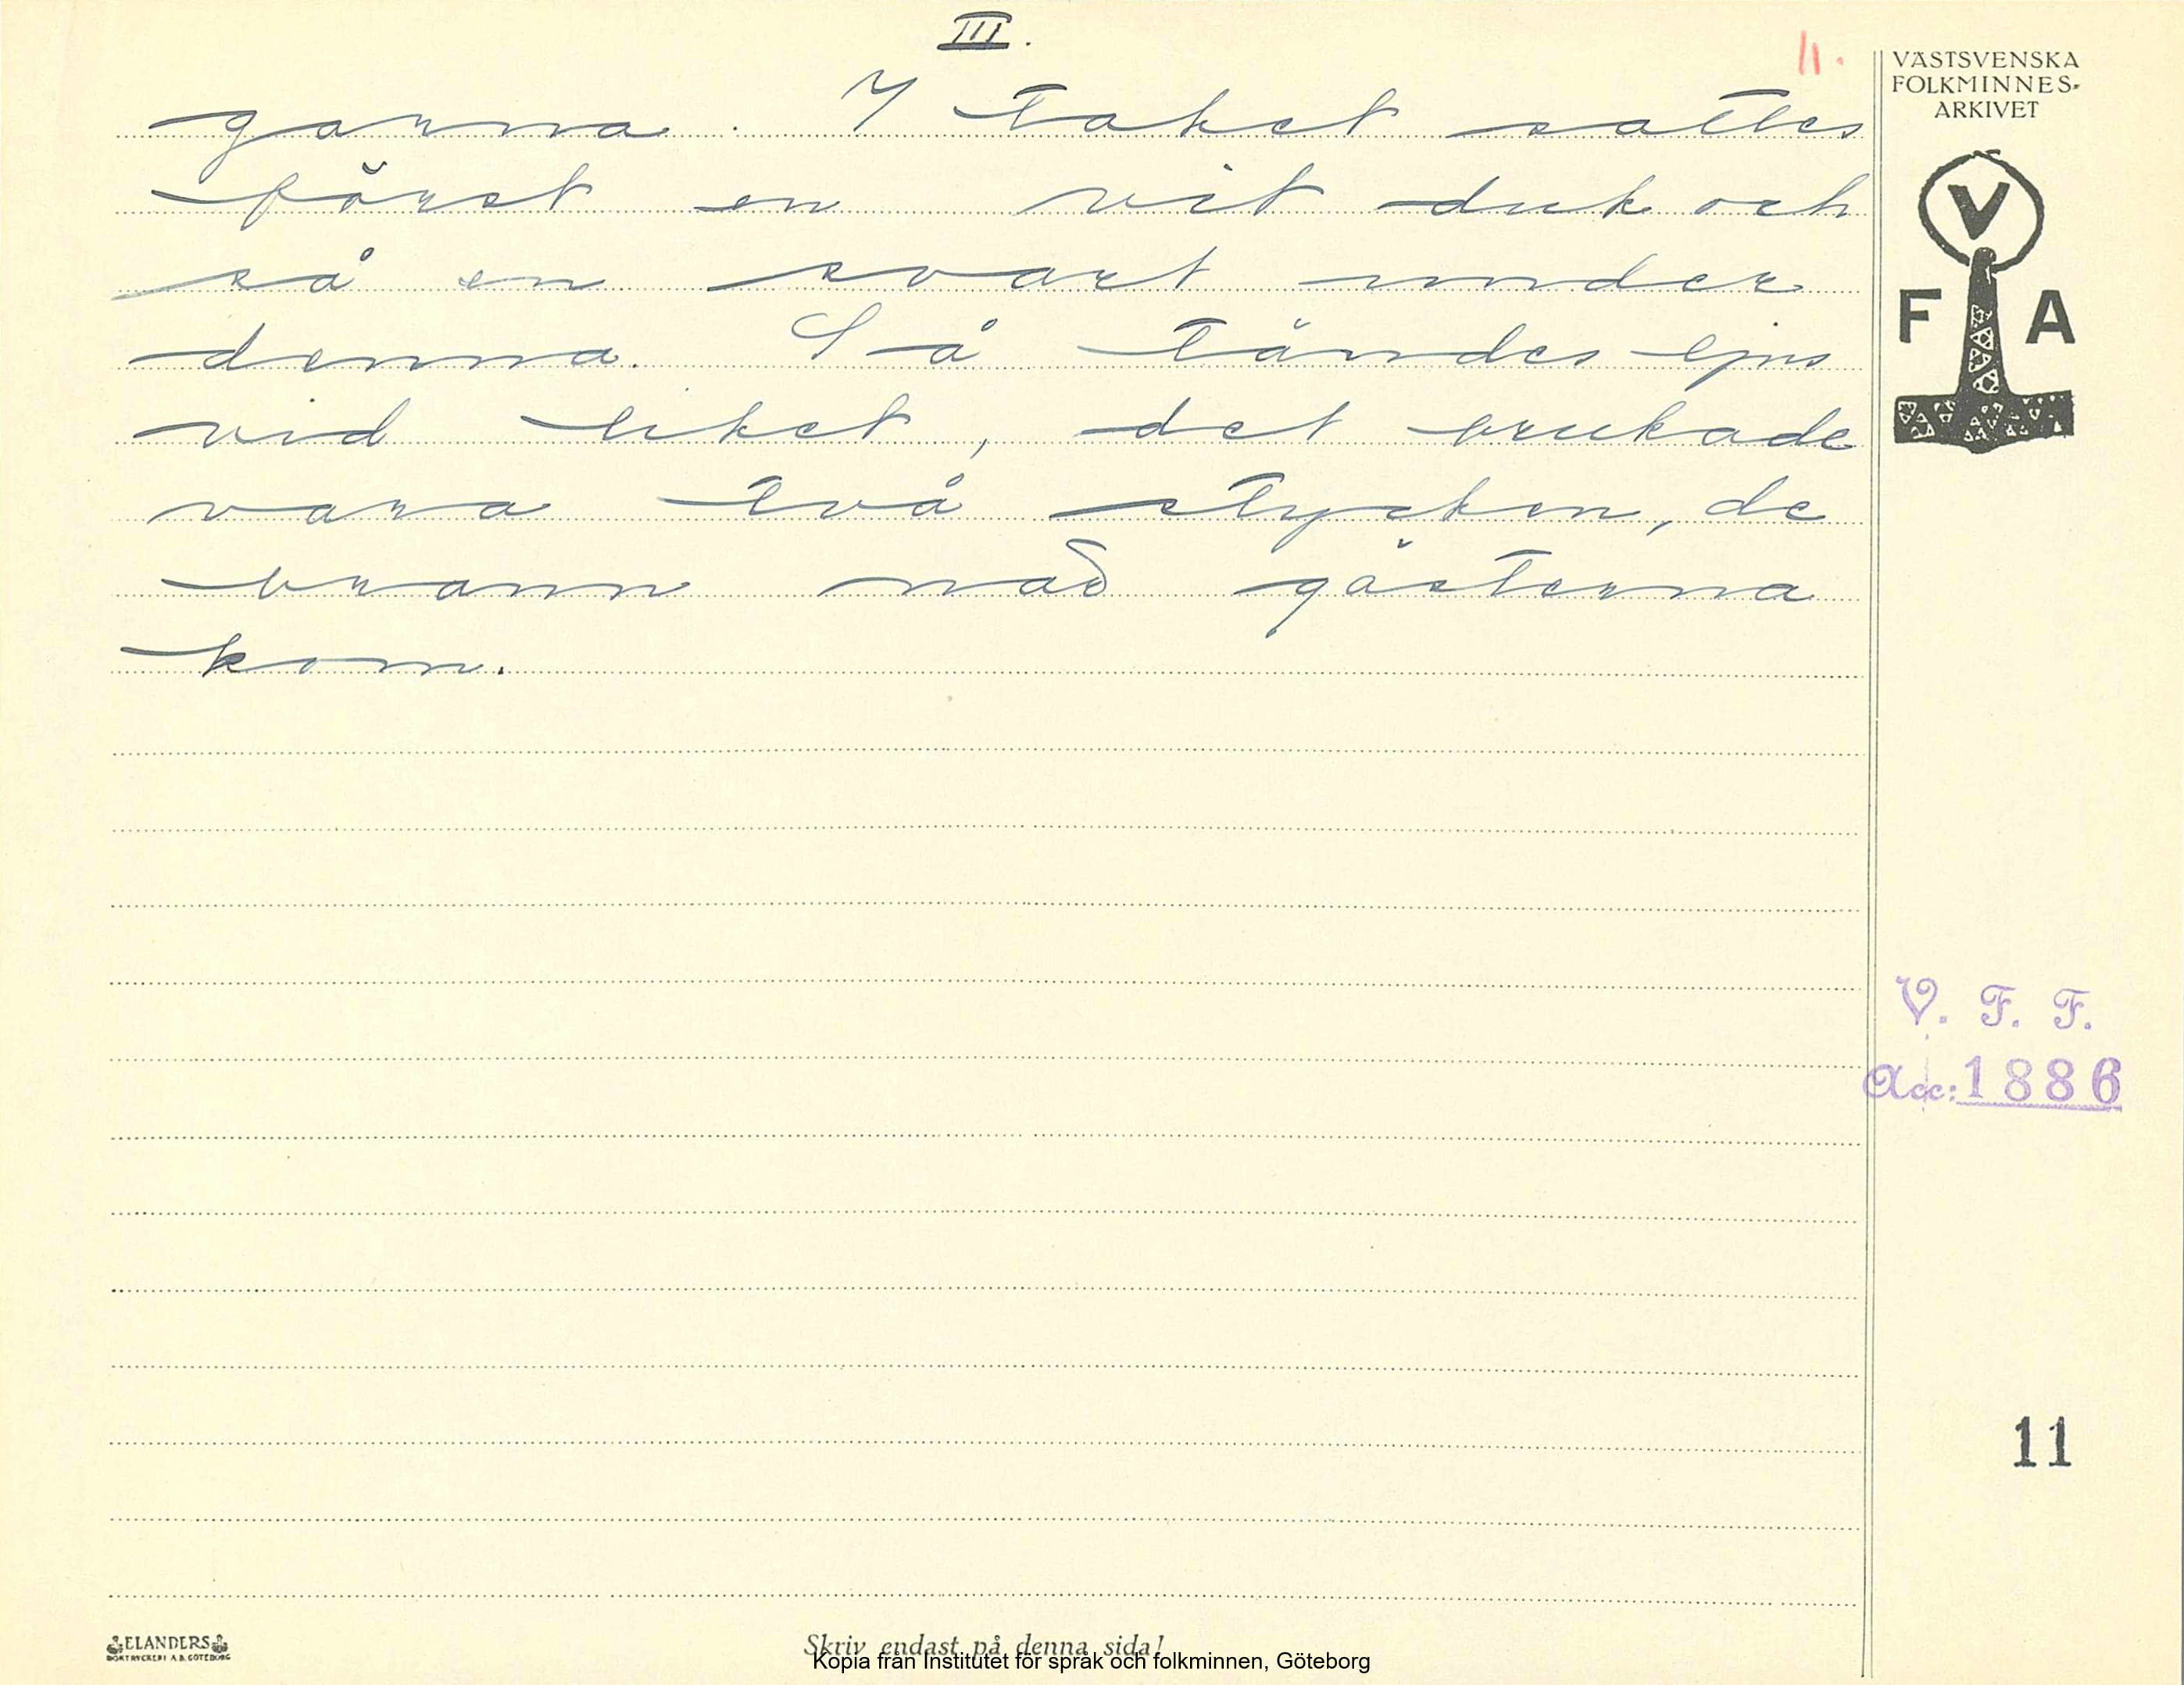 III.
11.
garna. I taket sattes
först en vit duk och
så en svart under
denna. Så tändes ljus
vid liket, det brukade
vara två stycken, de
brann nað gästerna
kom.
VÄSTSVENSKA
FOLKMINNES-
ARKIVET
V
F A
V. F. F.
Acc: 1886
11
ELANDERS
BOKTRYCKERI A.B. GÖTEBORG
Skriv endast på denna sida!
Kopia från Institutet för språk och folkminnen, Göteborg